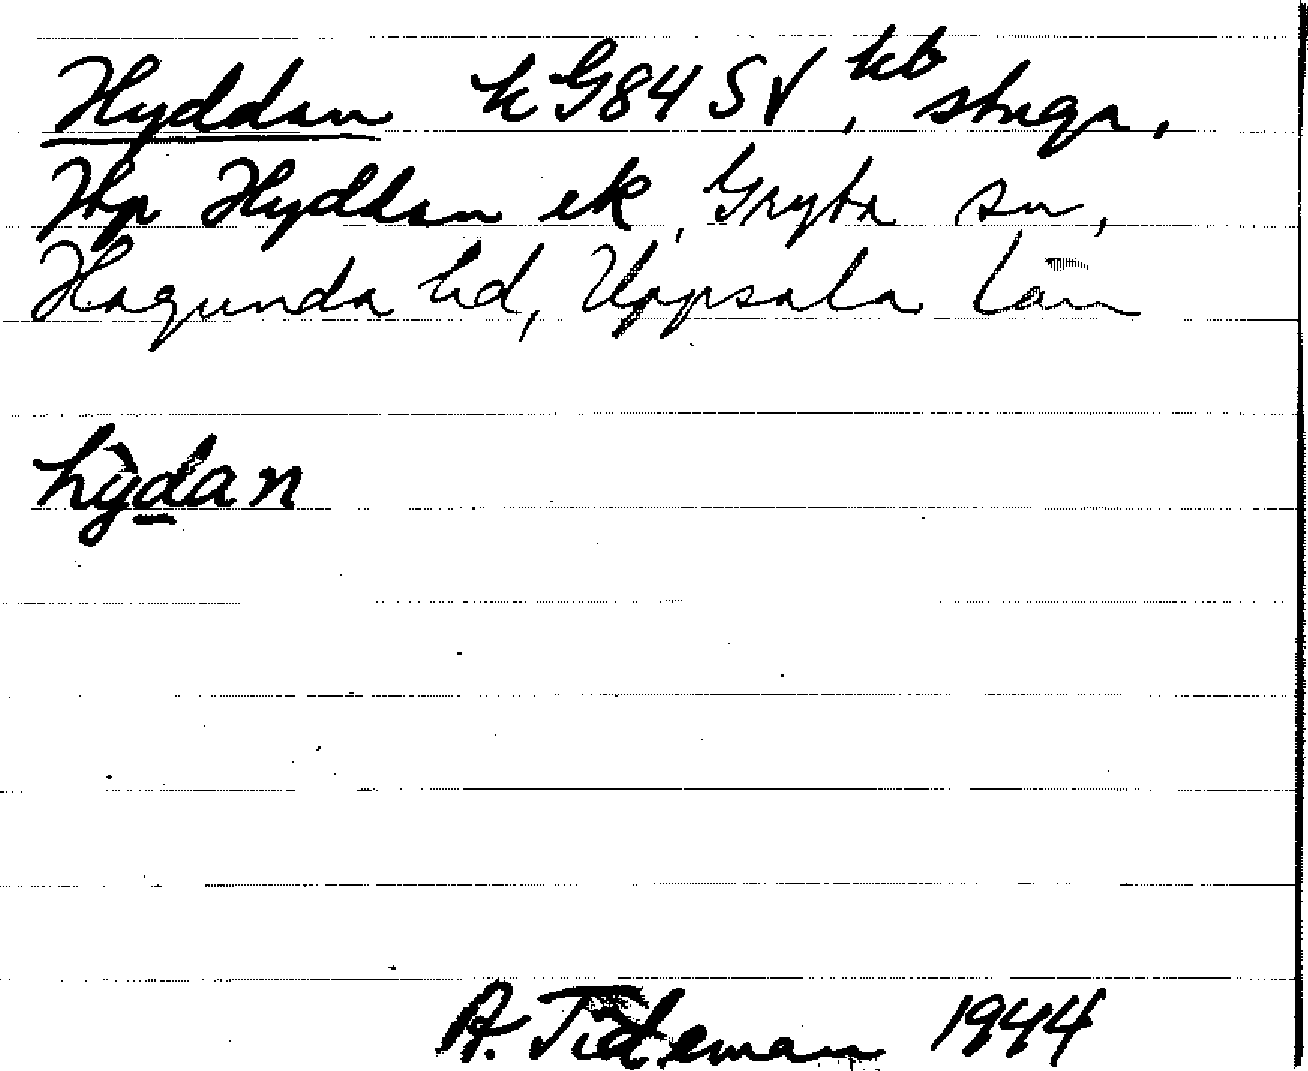 Hyddan k G84 SV kb, stuga,
Thp Hyddan ek, Gryta sn,
Hagunda hd, Uppsala län
hỳdan
A. Tideman 1944